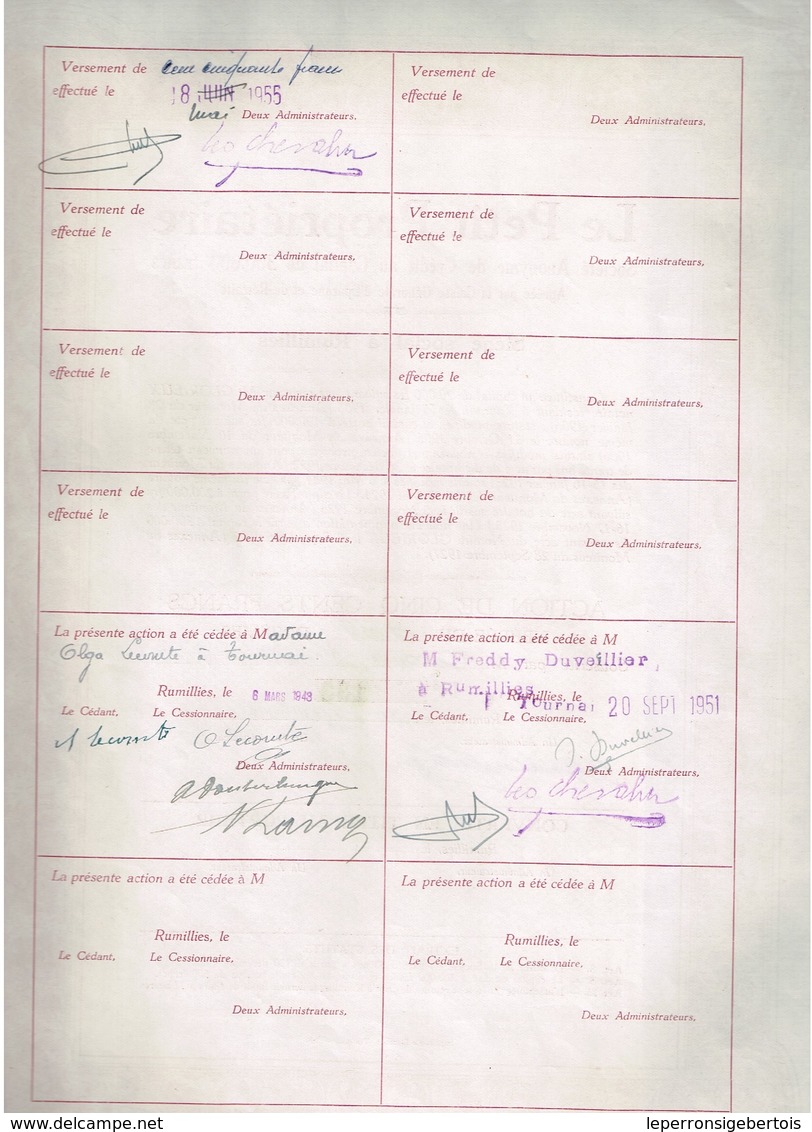 Versement de cent cinquante francs
effectué le 18 JUIN 1955
mai Deux Administrateurs.
Leo Chevalier
Versement de
effectué le
Deux Administrateurs.
Versement de
effectué le
Deux Administrateurs.
Versement de
effectué le
Deux Administrateurs.
Versement de
effectué le
Deux Administrateurs.
Versement de
effectué le
Deux Administrateurs.
Versement de
effectué le
Deux Administrateurs.
Versement de
effectué le
Deux Administrateurs.
La présente action a été cédée à Madame
Olga Lecomte à Tournai.
Rumillies, le 6 MARS 1943
Le Cédant, Le Cessionnaire,
A Lecomte O Lecomte
Deux Administrateurs,
La présente action a été cédée à M
M Freddy Duveillier,
à Rumillies
Rumillies, le Tournai 20 SEPT 1951
Le Cédant, Le Cessionnaire,
Deux Administrateurs,
Leo Chevalier
La présente action a été cédée à M
Rumillies, le
Le Cédant, Le Cessionnaire,
Deux Administrateurs,
La présente action a été cédée à M
Rumillies, le
Le Cédant, Le Cessionnaire,
Deux Administrateurs,
www.delcampe.net leperronsigebertois